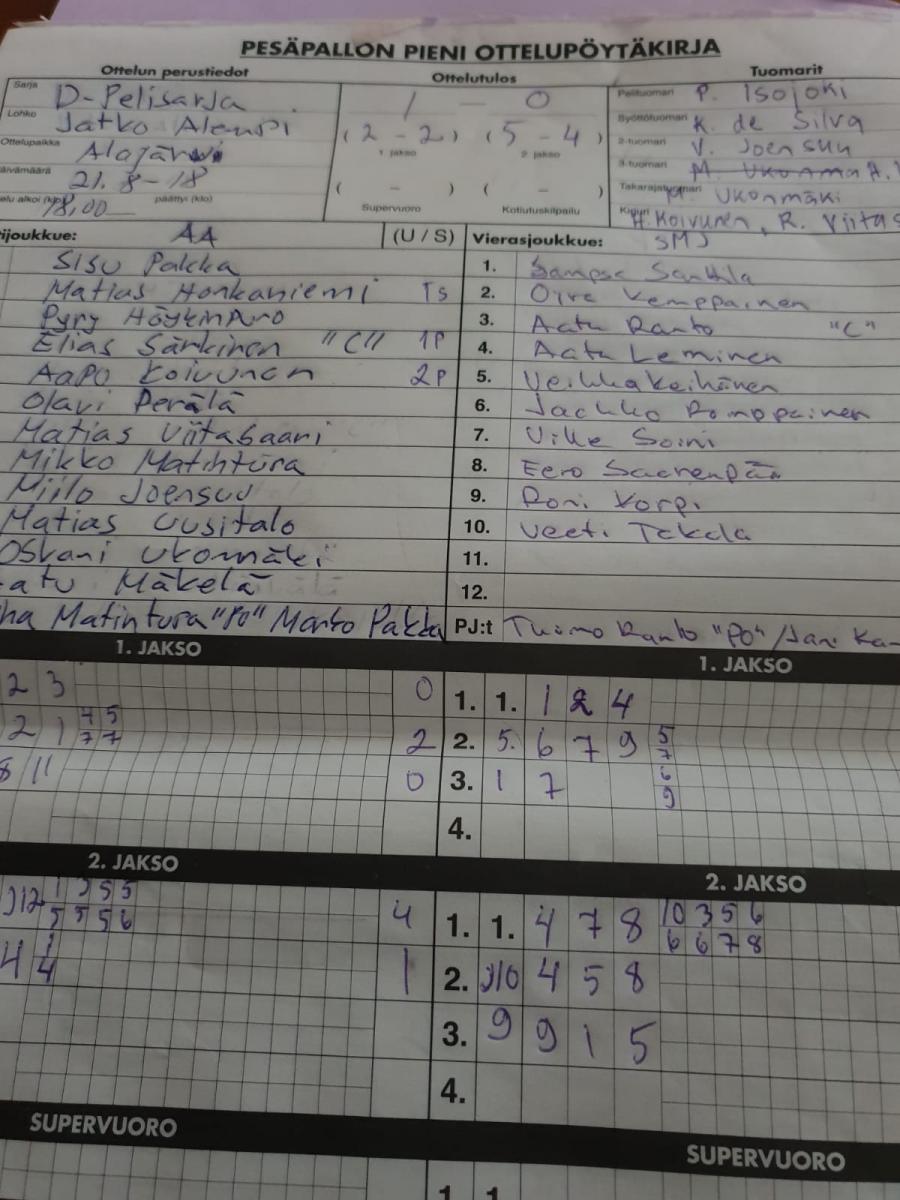 PESÄPALLON PIENI OTTELUPÖYTÄKIRJA
Ottelun perustiedot Ottelutulos Tuomarit
Sarja D-Pelisarja
Lohko Jatko Alempi
Ottelupaikka Alajärvi
äivämäärä 21.8-18
elu alkoi (klo) 18,00 päättyi (klo)
1 — 0
(2 - 2) (5 - 4)
1 jakso 2 jakso
( - ) ( - )
Supervuoro Kotiutuskilpailu
Pelituomari P. Isojoki
Syöttötuomari K. de Silva
2-tuomari V. Joensuu
3-tuomari
Takarajatuomari M. Ukonmäki
Kirjuri H. Koivunen, R. Viitas
tijoukkue: AA (U / S) Vierasjoukkue: SMJ
Sisu Pakka 1. Sampsa
Matias Honkaniemi Ts 2. Oiva Kemppainen
Pyry 3. Aatu Ranto "C"
Elias Särkinen "C" 1P 4. Aatu Leminen
Aapo Koivunen 2P 5. Veikka Keihänen
Olavi Perälä 6. Jaakko Romppainen
Matias Viitasaari 7. Ville Soini
Mikko Matintura 8. Eero Saarenpää
Miilo Joensuu 9. Roni Korpi
Matias Uusitalo 10. Veeti Takala
Oskari Ukonmäki 11.
atu Mäkelä 12.
ha Matintura "PO" Marko Pakka PJ:t Tuomo Ranto "PO" / Jani Ka
1. JAKSO 1. JAKSO
2 3 0 1. 1. 1 2 4
2 1 4 5 2 2. 5. 6 7 9 5
7 7 7
8 11 0 3. 1 7 6
9
4.
2. JAKSO 2. JAKSO
)12 1 3 5 5 4 1. 1. 4 7 8 10 3 5 6
5 5 5 6 6 6 7 8
4 4 1 2. )10 4 5 8
3. 9 9 1 5
4.
SUPERVUORO SUPERVUORO
1 1